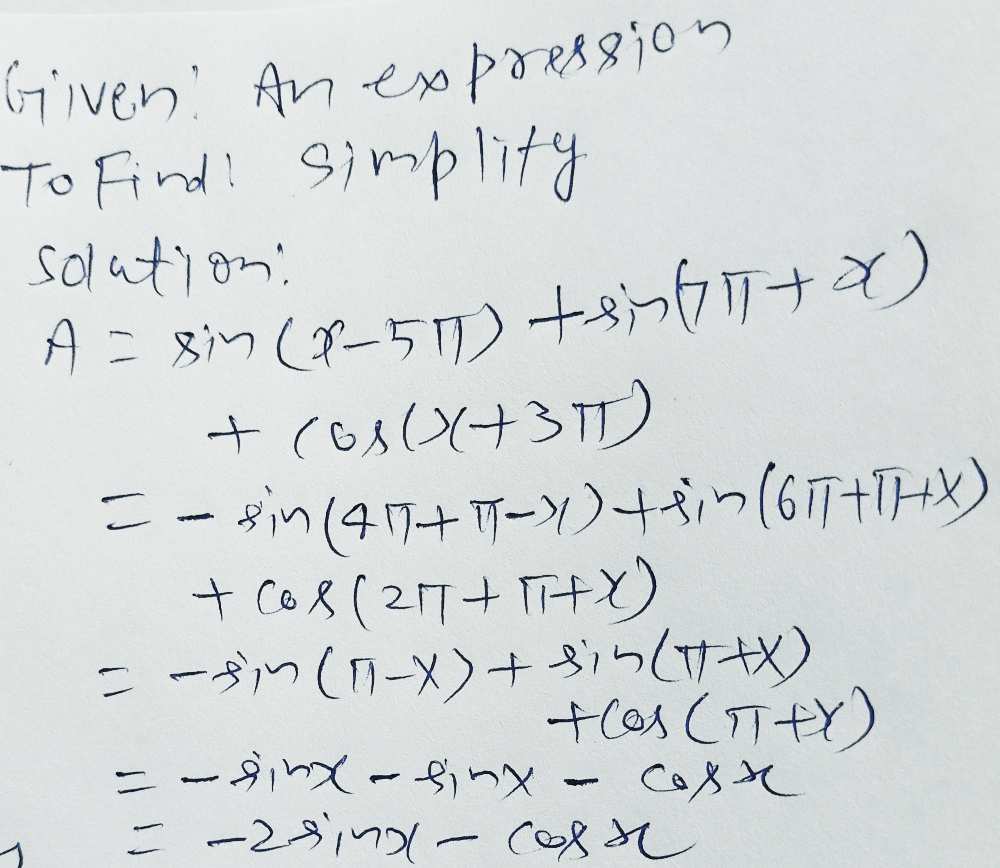 Given: An expression
To Find: Simplity
Solution:
A = sin(x-5π) + sin(7π+x)
+ cos(x+3π)
= - sin(4π+π-x) + sin(6π+π+x)
+ cos(2π+π+x)
= - sin(π-x) + sin(π+x)
+ cos(π+x)
= - sinx - sinx - cosx
= -2sinx - cosx